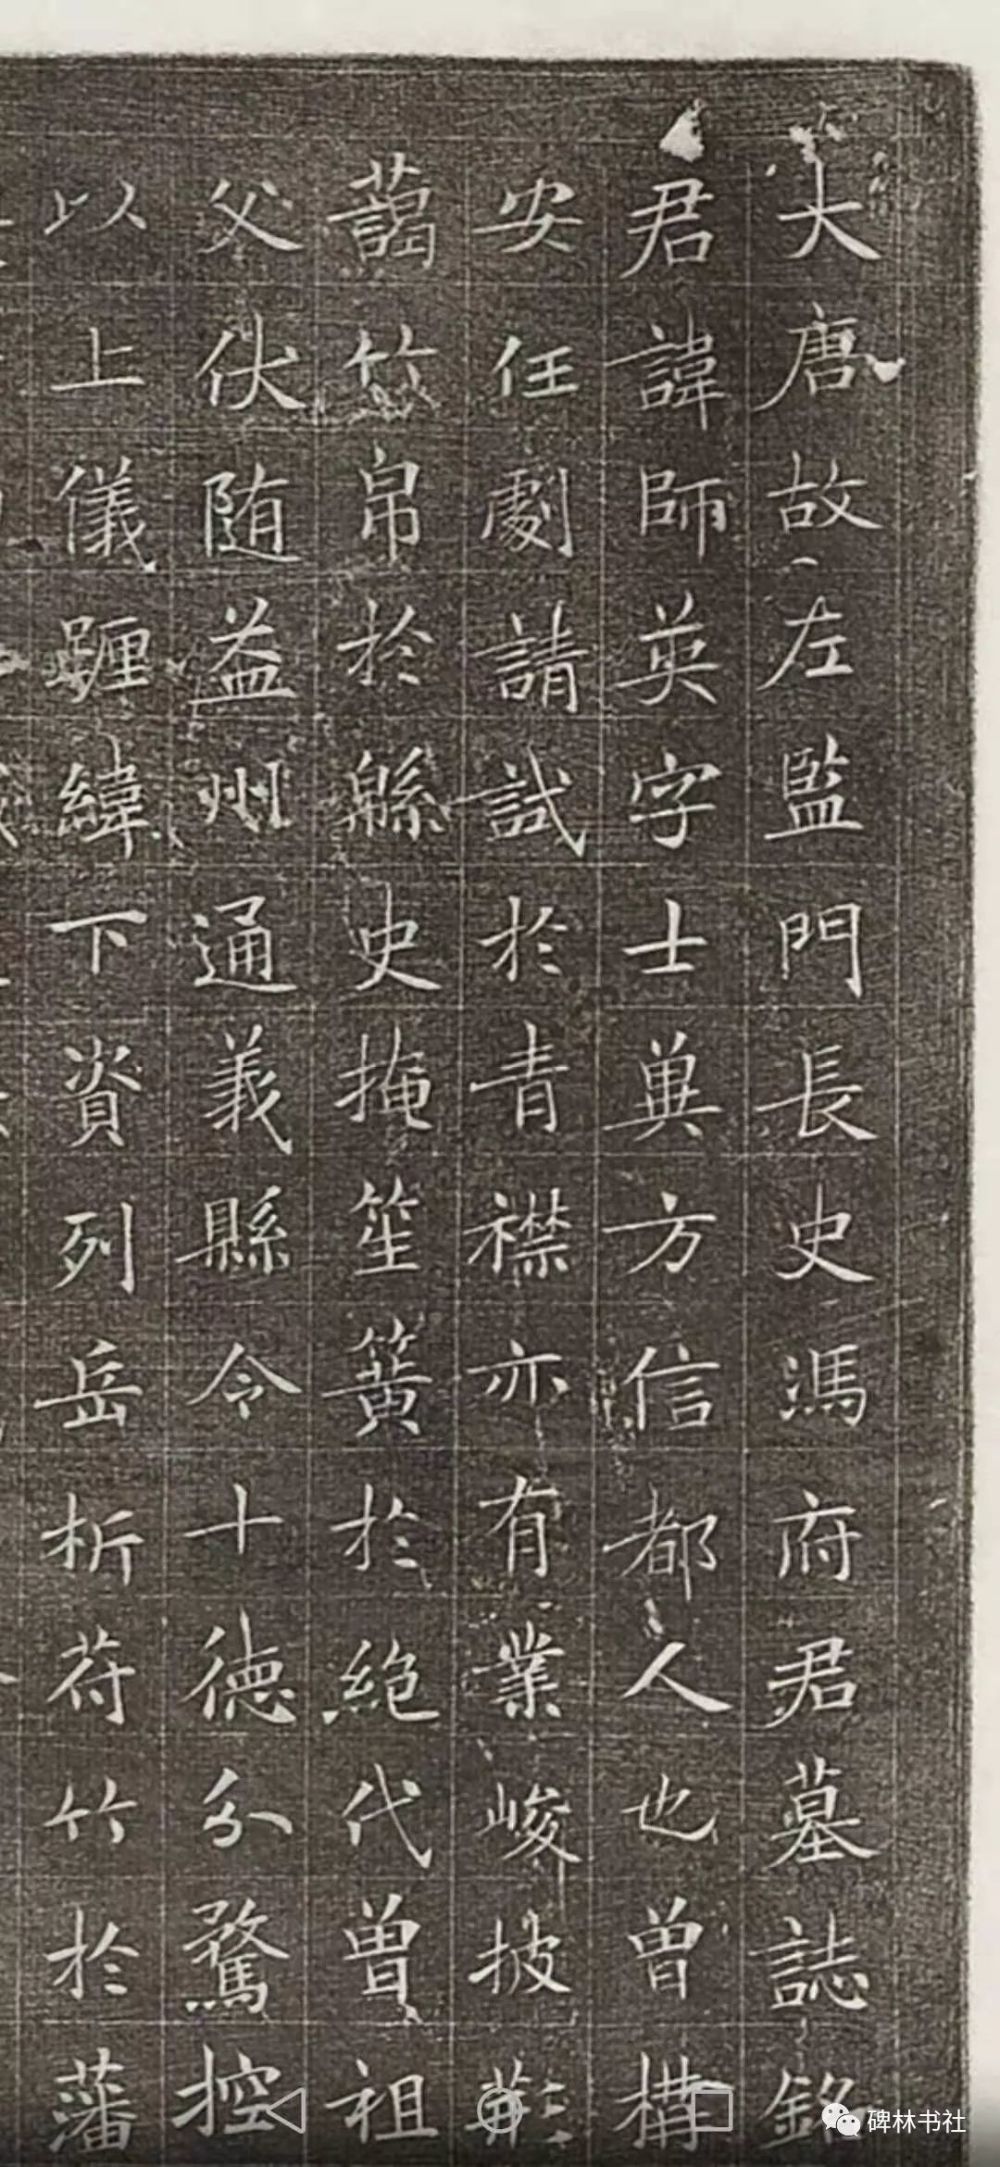 大唐故左監門長史馮府君墓誌銘
君諱師英字士兾方信都人也曾構
安任劇請試於青襟亦有業峻披
藹竹帛於緜史掩笙簧於絕代曽祖
父伏随益州通義縣令十德分騖控
以上儀躔緯下資列岳析苻竹於藩
碑林书社